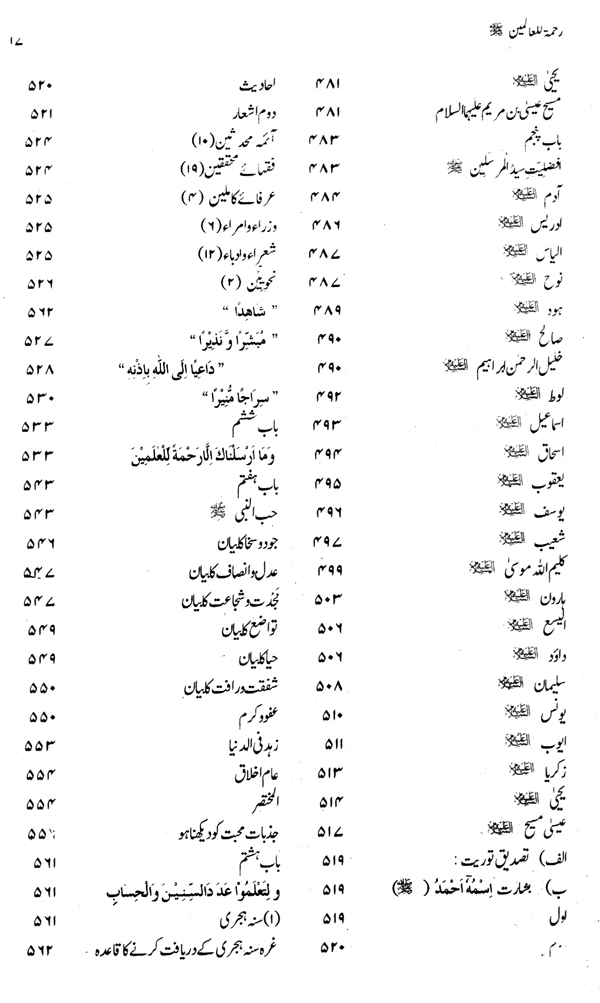 رحمۃ للعالمین ﷺ
۱۷
یحییٰ علیہ السلام ۴۸۱
مسیح عیسیٰ بن مریم علیہما السلام ۴۸۱
باب پنجم ۴۸۳
افضلیت سید المرسلین ﷺ ۴۸۳
آدم علیہ السلام ۴۸۴
ادریس علیہ السلام ۴۸۶
الیاس علیہ السلام ۴۸۷
نوح علیہ السلام ۴۸۷
ہود علیہ السلام ۴۸۹
صالح علیہ السلام ۴۹۰
خلیل الرحمن ابراہیم علیہ السلام ۴۹۰
لوط علیہ السلام ۴۹۲
اسماعیل علیہ السلام ۴۹۳
اسحاق علیہ السلام ۴۹۴
یعقوب علیہ السلام ۴۹۵
یوسف علیہ السلام ۴۹۶
شعیب علیہ السلام ۴۹۷
کلیم اللہ موسیٰ علیہ السلام ۴۹۹
ہارون علیہ السلام ۵۰۳
الیسع علیہ السلام ۵۰۶
داؤد علیہ السلام ۵۰۶
سلیمان علیہ السلام ۵۰۸
یونس علیہ السلام ۵۱۰
ایوب علیہ السلام ۵۱۱
زکریا علیہ السلام ۵۱۳
یحییٰ علیہ السلام ۵۱۴
عیسیٰ مسیح علیہ السلام ۵۱۷
الف) تصدیق توریت : ۵۱۹
ب) بشارت اِسْمُہٗ اَحْمَدُ (ﷺ) ۵۱۹
اول ۵۱۹
۵۲۰
احادیث ۵۲۰
دوم اشعار ۵۲۱
آئمہ محدثین (۱۰) ۵۲۴
فقہائے محققین (۱۹) ۵۲۴
عرفائے کاملین (۴) ۵۲۵
وزراء و امراء (۶) ۵۲۵
شعراء و ادباء (۱۲) ۵۲۵
نحویین (۲) ۵۲۶
"شَاهِدًا" ۵۶۲
"مُبَشِّرًا وَّ نَذِيْرًا" ۵۲۷
"دَاعِيًا اِلَى اللّٰهِ بِاِذْنِهٖ" ۵۲۸
"سِرَاجًا مُّنِيْرًا" ۵۳۰
باب ششم ۵۳۳
وَمَا اَرْسَلْنَاكَ اِلَّا رَحْمَةً لِّلْعٰلَمِيْنَ ۵۳۳
باب ہفتم ۵۴۳
حب النبی ﷺ ۵۴۳
جود و سخا کا بیان ۵۴۶
عدل و انصاف کا بیان ۵۴۷
نَجْدَت و شجاعت کا بیان ۵۴۷
تواضع کا بیان ۵۴۹
حیا کا بیان ۵۴۹
شفقت و رافت کا بیان ۵۵۰
عفو و کرم ۵۵۰
زہد فی الدنیا ۵۵۳
عام اخلاق ۵۵۴
المختصر ۵۵۴
جذبات محبت کو دیکھنا ہو
باب ہشتم ۵۶۱
وَلِتَعْلَمُوْا عَدَدَ السِّنِيْنَ وَالْحِسَابِ ۵۶۱
(۱) سنہ ہجری ۵۶۱
غرہ سنہ ہجری کے دریافت کرنے کا قاعدہ ۵۶۲